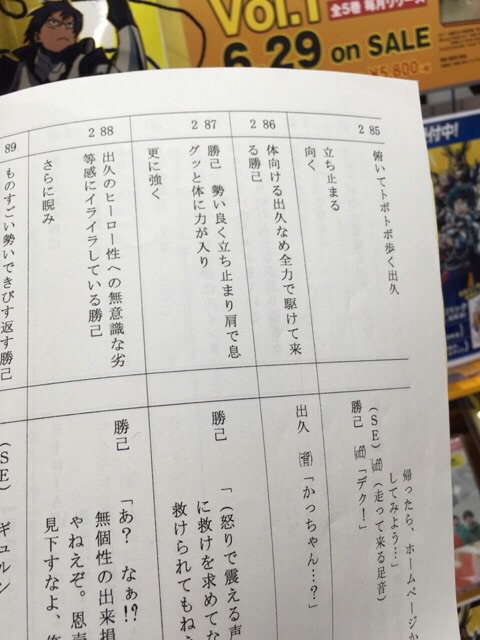 Vol.1
全5巻 毎月リリース
6.29 on SALE
¥5,800
付中!
285
俯いてトボトボ歩く出久
立ち止まる
向く
286
体向ける出久なめ全力で駆けて来
る勝己
287
勝己 勢い良く立ち止まり肩で息
グッと体に力が入り
更に強く
288
出久のヒーロー性への無意識な劣
等感にイライラしている勝己
さらに睨み
89
ものすごい勢いできびす返す勝己
帰ったら、ホームページか
してみよう…」
(SE)
(走って来る足音)
勝己
「デク!」
出久
「かっちゃん…?」
勝己
「(怒りで震える声
に救けを求めてな
救けられてもねぇ
勝己
「あ? なぁ!?
無個性の出来損
やねえぞ。恩売
見下すなよ、
(SE)
ギュルン